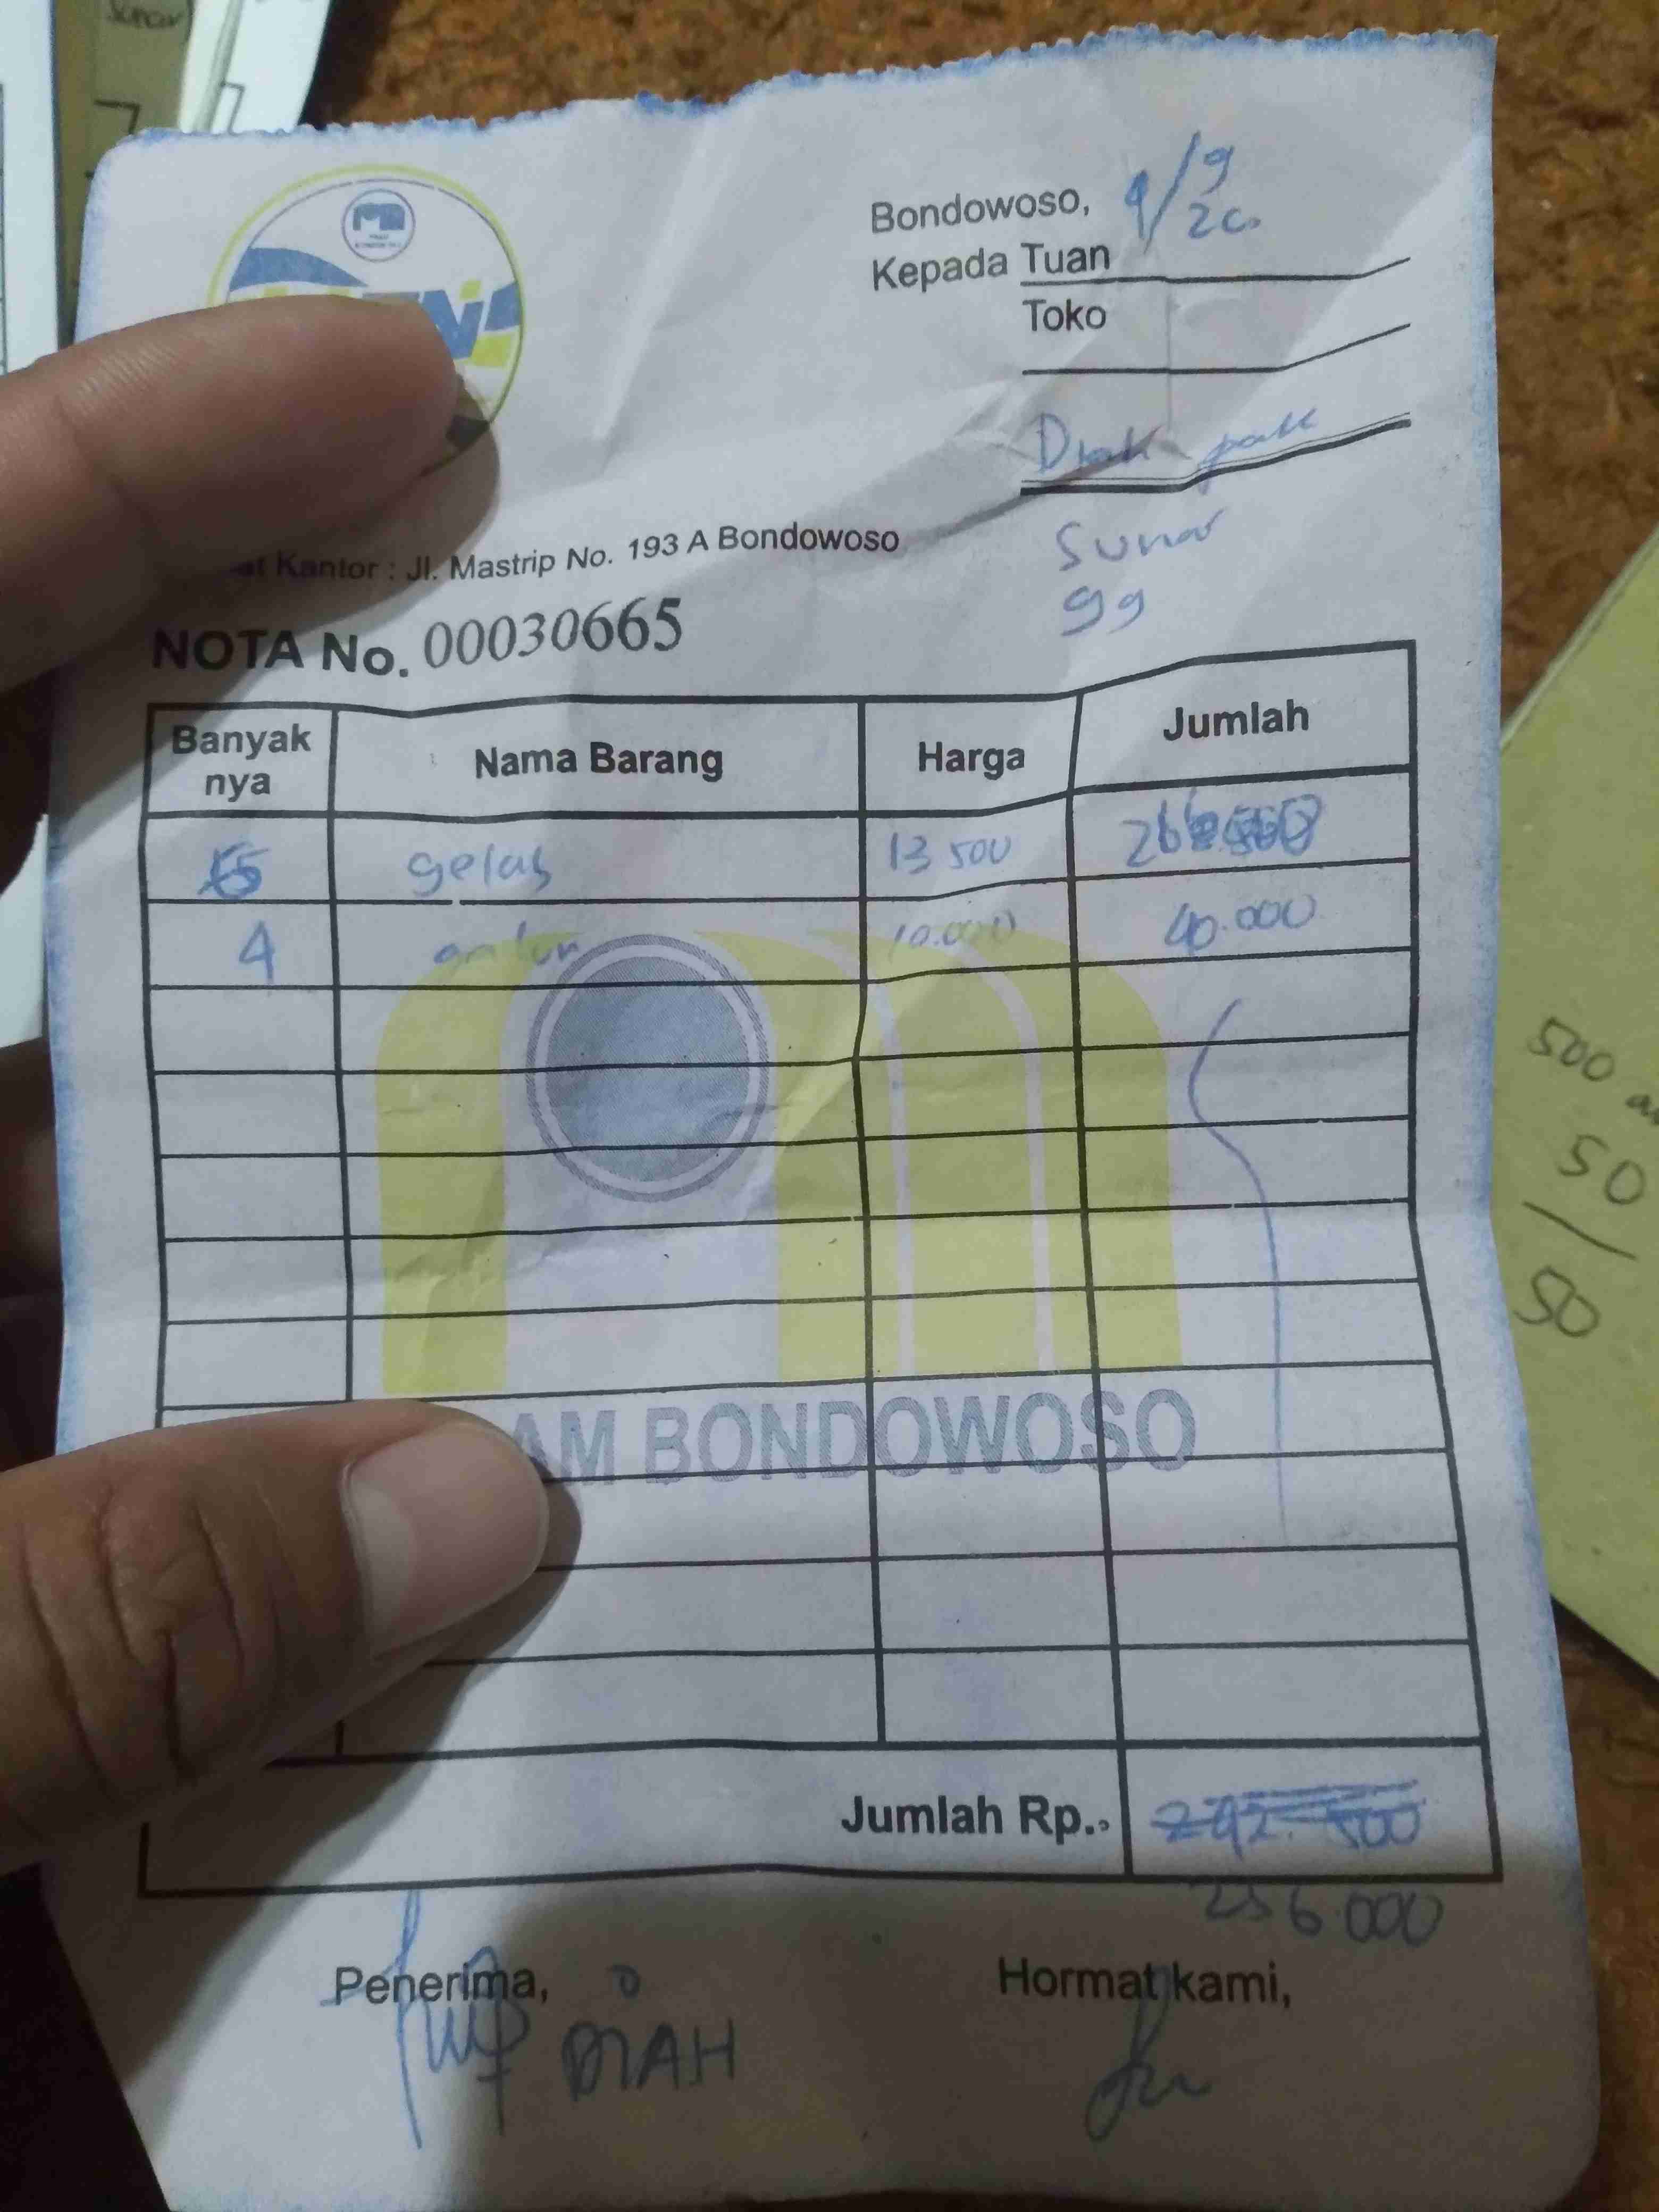 Bondowoso, 9/9 20
Kepada Tuan
Toko
Sunar
99
Kantor : Jl. Mastrip No. 193 A Bondowoso
NOTA No. 00030665
Banyak nya Nama Barang Harga Jumlah
gelas 13 500
4 galon 10.000 40.000
AM BONDOWOSO
Jumlah Rp. 292.500
256.000
Penerima, Hormat kami,
DIAH
500
50
50